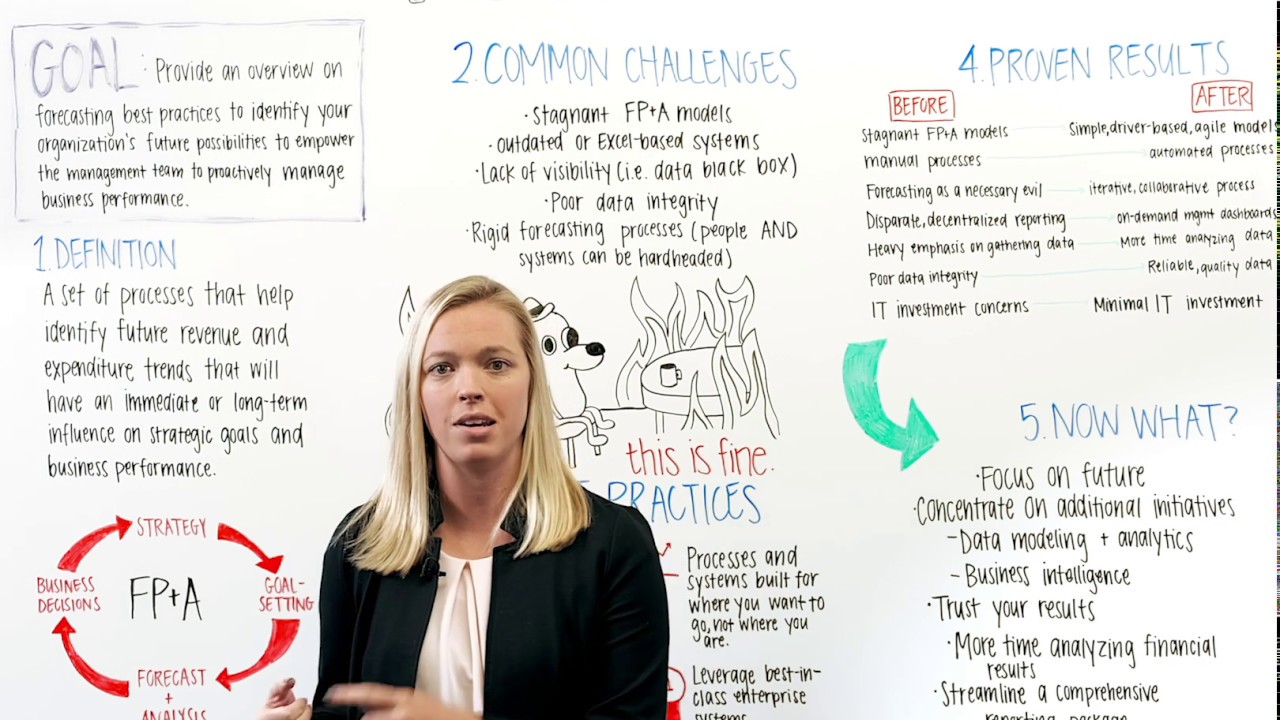 GOAL: Provide an overview on
forecasting best practices to identify your
organization's future possibilities to empower
the management team to proactively manage
business performance.
1. DEFINITION
A set of processes that help
identify future revenue and
expenditure trends that will
have an immediate or long-term
influence on strategic goals and
business performance.
STRATEGY
GOAL-
SETTING
FORECAST
+
ANALYSIS
BUSINESS
DECISIONS
FP+A
2. COMMON CHALLENGES
·Stagnant FP+A models
·outdated or Excel-based systems
·Lack of visibility (i.e. data black box)
·Poor data integrity
·Rigid forecasting processes (people AND
systems can be hardheaded)
this is fine.
PRACTICES
Processes and
systems built for
where you want to
go, not where you
are.
Leverage best-in-
class enterprise
systems
4. PROVEN RESULTS
BEFORE AFTER
Stagnant FP+A models Simple, driver-based, agile model
manual processes automated processes
Forecasting as a necessary evil iterative, collaborative process
Disparate, decentralized reporting on-demand mgmt dashboards
Heavy emphasis on gathering data More time analyzing data
Poor data integrity Reliable, quality data
IT investment concerns Minimal IT investment
5. NOW WHAT?
·Focus on future
·Concentrate on additional initiatives
-Data modeling + analytics
-Business intelligence
·Trust your results
·More time analyzing financial
results
·Streamline a comprehensive
reporting package